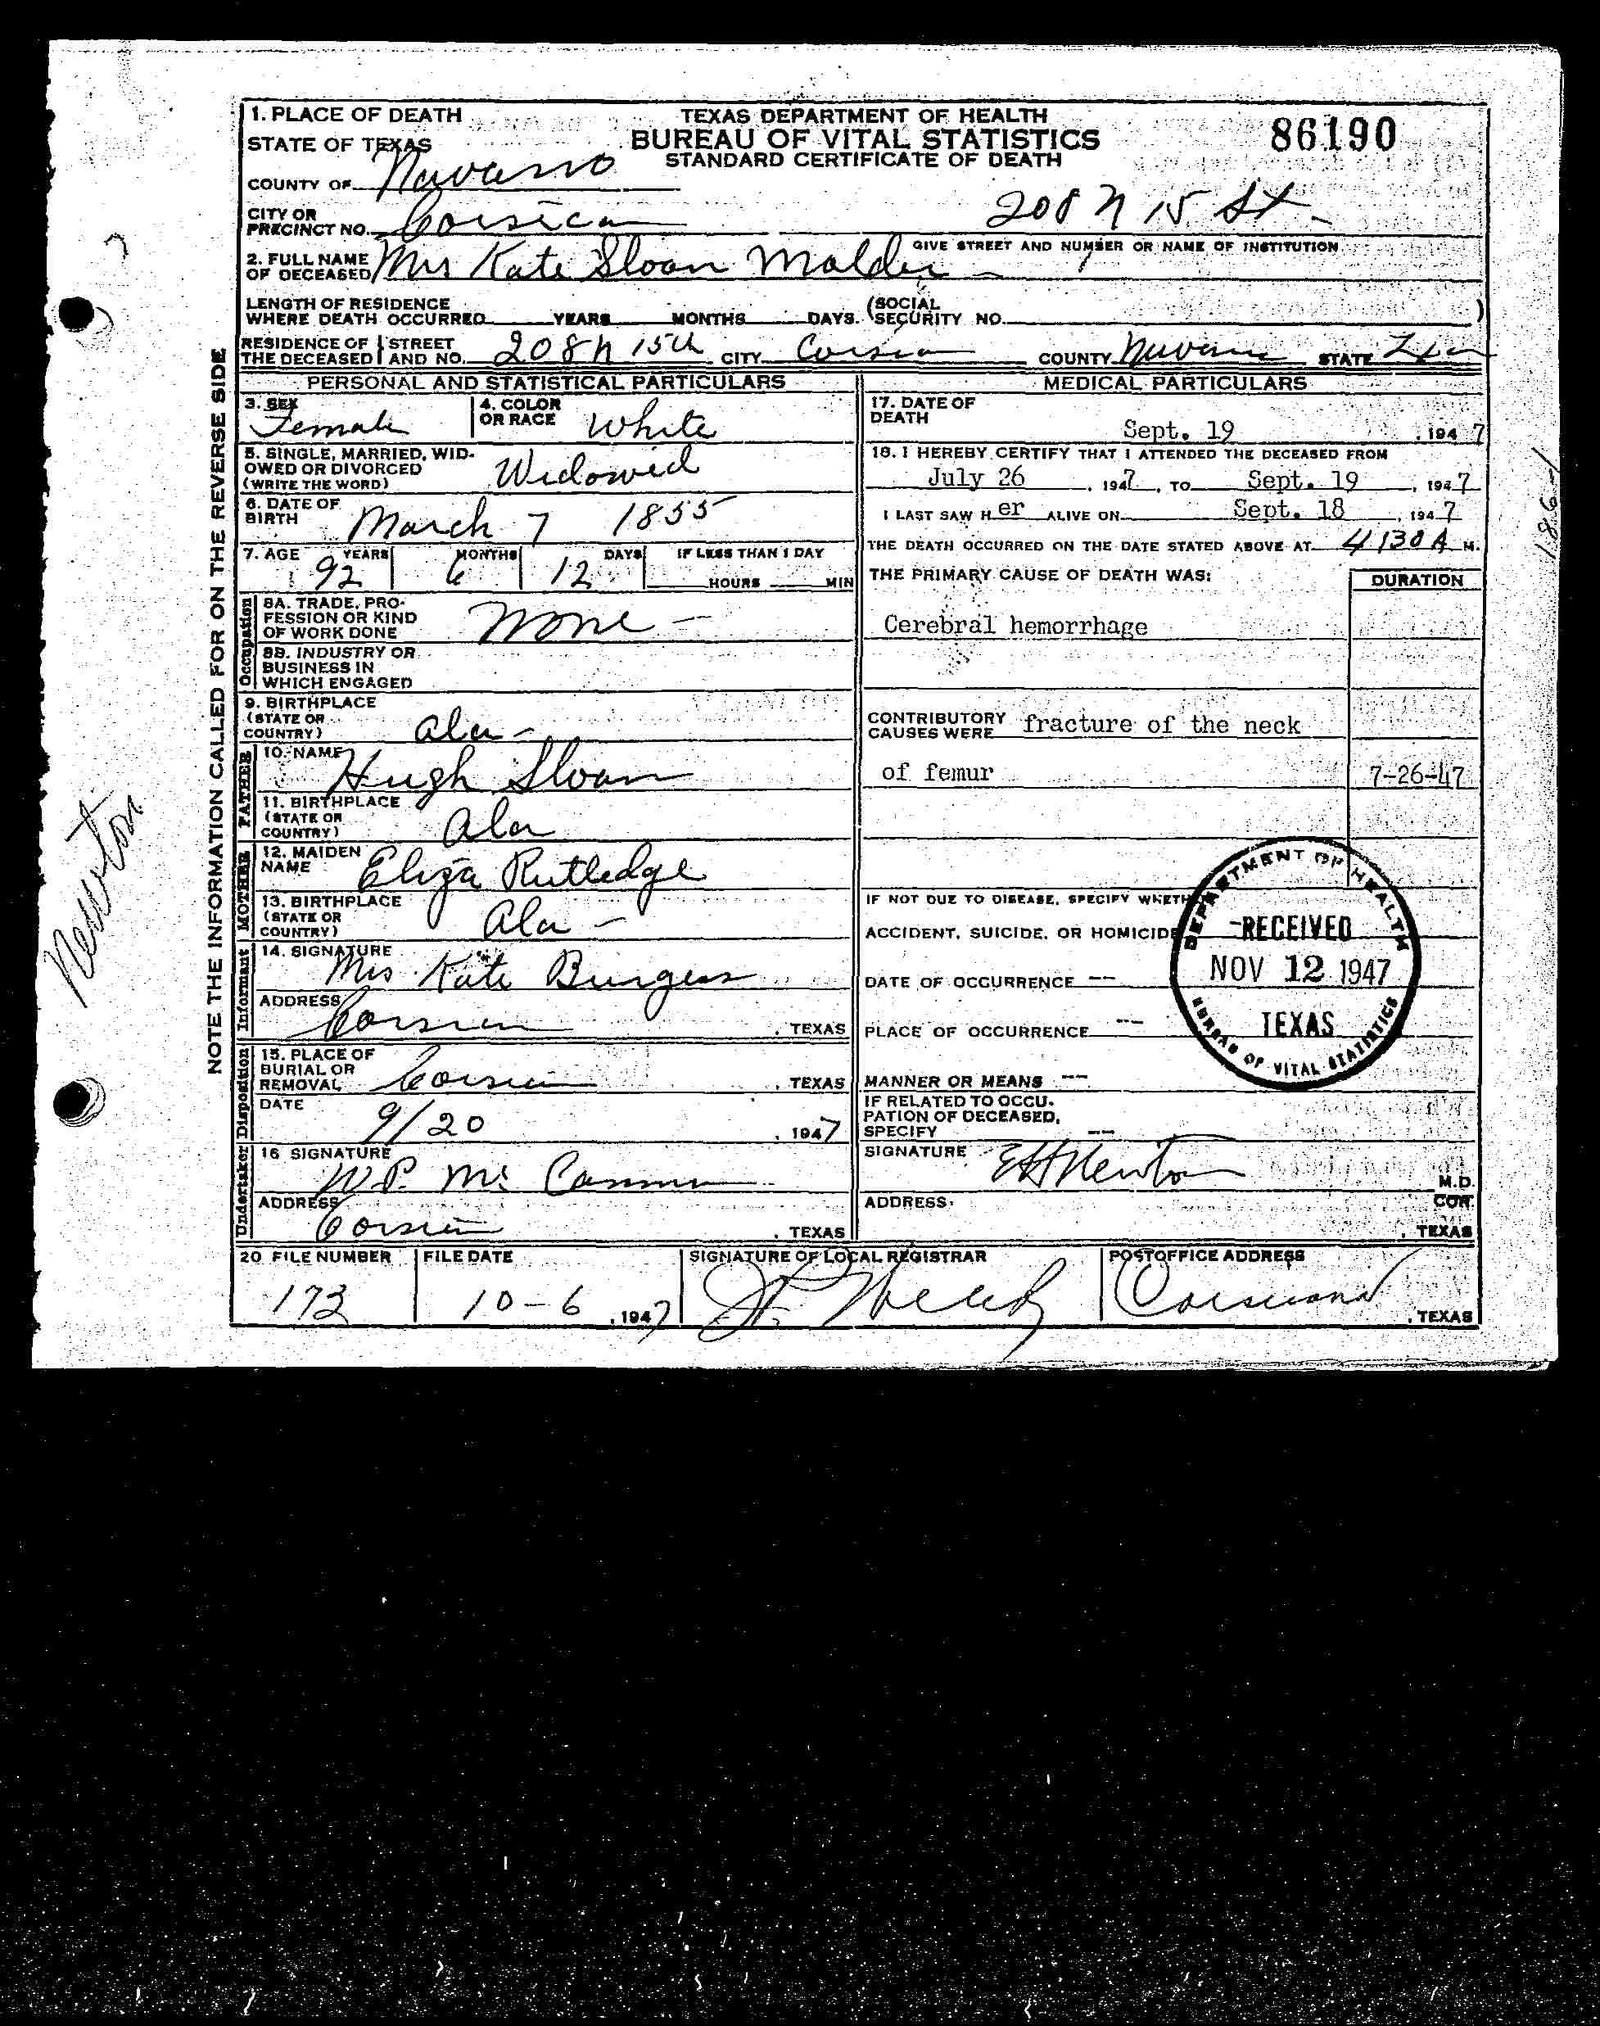 1. PLACE OF DEATH
STATE OF TEXAS
COUNTY OF Navarro
TEXAS DEPARTMENT OF HEALTH
BUREAU OF VITAL STATISTICS
STANDARD CERTIFICATE OF DEATH
86190
CITY OR PRECINCT NO. Corsicana
208 N 15 St.
GIVE STREET AND NUMBER OR NAME OF INSTITUTION
2. FULL NAME OF DECEASED Mrs Kate Sloan
LENGTH OF RESIDENCE WHERE DEATH OCCURRED YEARS MONTHS DAYS. (SOCIAL SECURITY NO. )
RESIDENCE OF THE DECEASED { STREET AND NO. 208 N 15th CITY Corsicana COUNTY Navarro STATE
PERSONAL AND STATISTICAL PARTICULARS
3. SEX Female
4. COLOR OR RACE White
5. SINGLE, MARRIED, WIDOWED OR DIVORCED (WRITE THE WORD) Widowed
6. DATE OF BIRTH March 7 1855
7. AGE YEARS 92 MONTHS 6 DAYS 12 IF LESS THAN 1 DAY HOURS MIN
Occupation
8A. TRADE, PROFESSION OR KIND OF WORK DONE None -
8B. INDUSTRY OR BUSINESS IN WHICH ENGAGED
9. BIRTHPLACE (STATE OR COUNTRY) Ala -
FATHER
10. NAME Hugh Sloan
11. BIRTHPLACE (STATE OR COUNTRY) Ala
MOTHER
12. MAIDEN NAME Eliza Rutledge
13. BIRTHPLACE (STATE OR COUNTRY) Ala -
Informant
14. SIGNATURE Mrs. Kate Burgess
ADDRESS Corsicana , TEXAS
Disposition
15. PLACE OF BURIAL OR REMOVAL Corsicana , TEXAS
DATE 9/20 , 1947
Undertaker
16 SIGNATURE W.P. Mc
ADDRESS Corsicana , TEXAS
MEDICAL PARTICULARS
17. DATE OF DEATH Sept. 19 , 1947
18. I HEREBY CERTIFY THAT I ATTENDED THE DECEASED FROM
July 26 , 1947, TO Sept. 19 , 1947
I LAST SAW Her ALIVE ON Sept. 18 , 1947
THE DEATH OCCURRED ON THE DATE STATED ABOVE AT 4:30 A M.
THE PRIMARY CAUSE OF DEATH WAS:
DURATION
Cerebral hemorrhage
CONTRIBUTORY CAUSES WERE fracture of the neck
of femur 7-26-47
IF NOT DUE TO DISEASE, SPECIFY
ACCIDENT, SUICIDE, OR HOMICIDE
DATE OF OCCURRENCE --
PLACE OF OCCURRENCE --
MANNER OR MEANS --
IF RELATED TO OCCUPATION OF DECEASED, SPECIFY --
DEPARTMENT OF HEALTH
RECEIVED
NOV 12 1947
TEXAS
BUREAU OF VITAL STATISTICS
SIGNATURE E H Newton M.D.
ADDRESS: COR.
, TEXAS
20 FILE NUMBER 173
FILE DATE 10-6 , 1947
SIGNATURE OF LOCAL REGISTRAR
POSTOFFICE ADDRESS Corsicana , TEXAS
NOTE THE INFORMATION CALLED FOR ON THE REVERSE SIDE
Newton
186-1